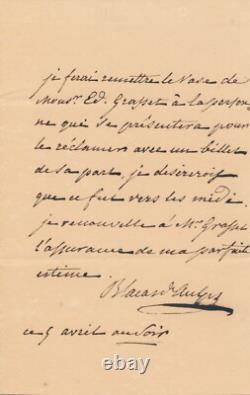 je ferai remettre le Vase de
Mons.r Ed. Grasset à la person
ne qui se présentera pour
le réclamer avec un billet
de sa part, je désirerois
que ce fut vers les midi.
je renouvelle à Mr. Grasset
l'assurance de ma parfaite
estime.
Blacas d'Aulps
ce 5 avril au soir